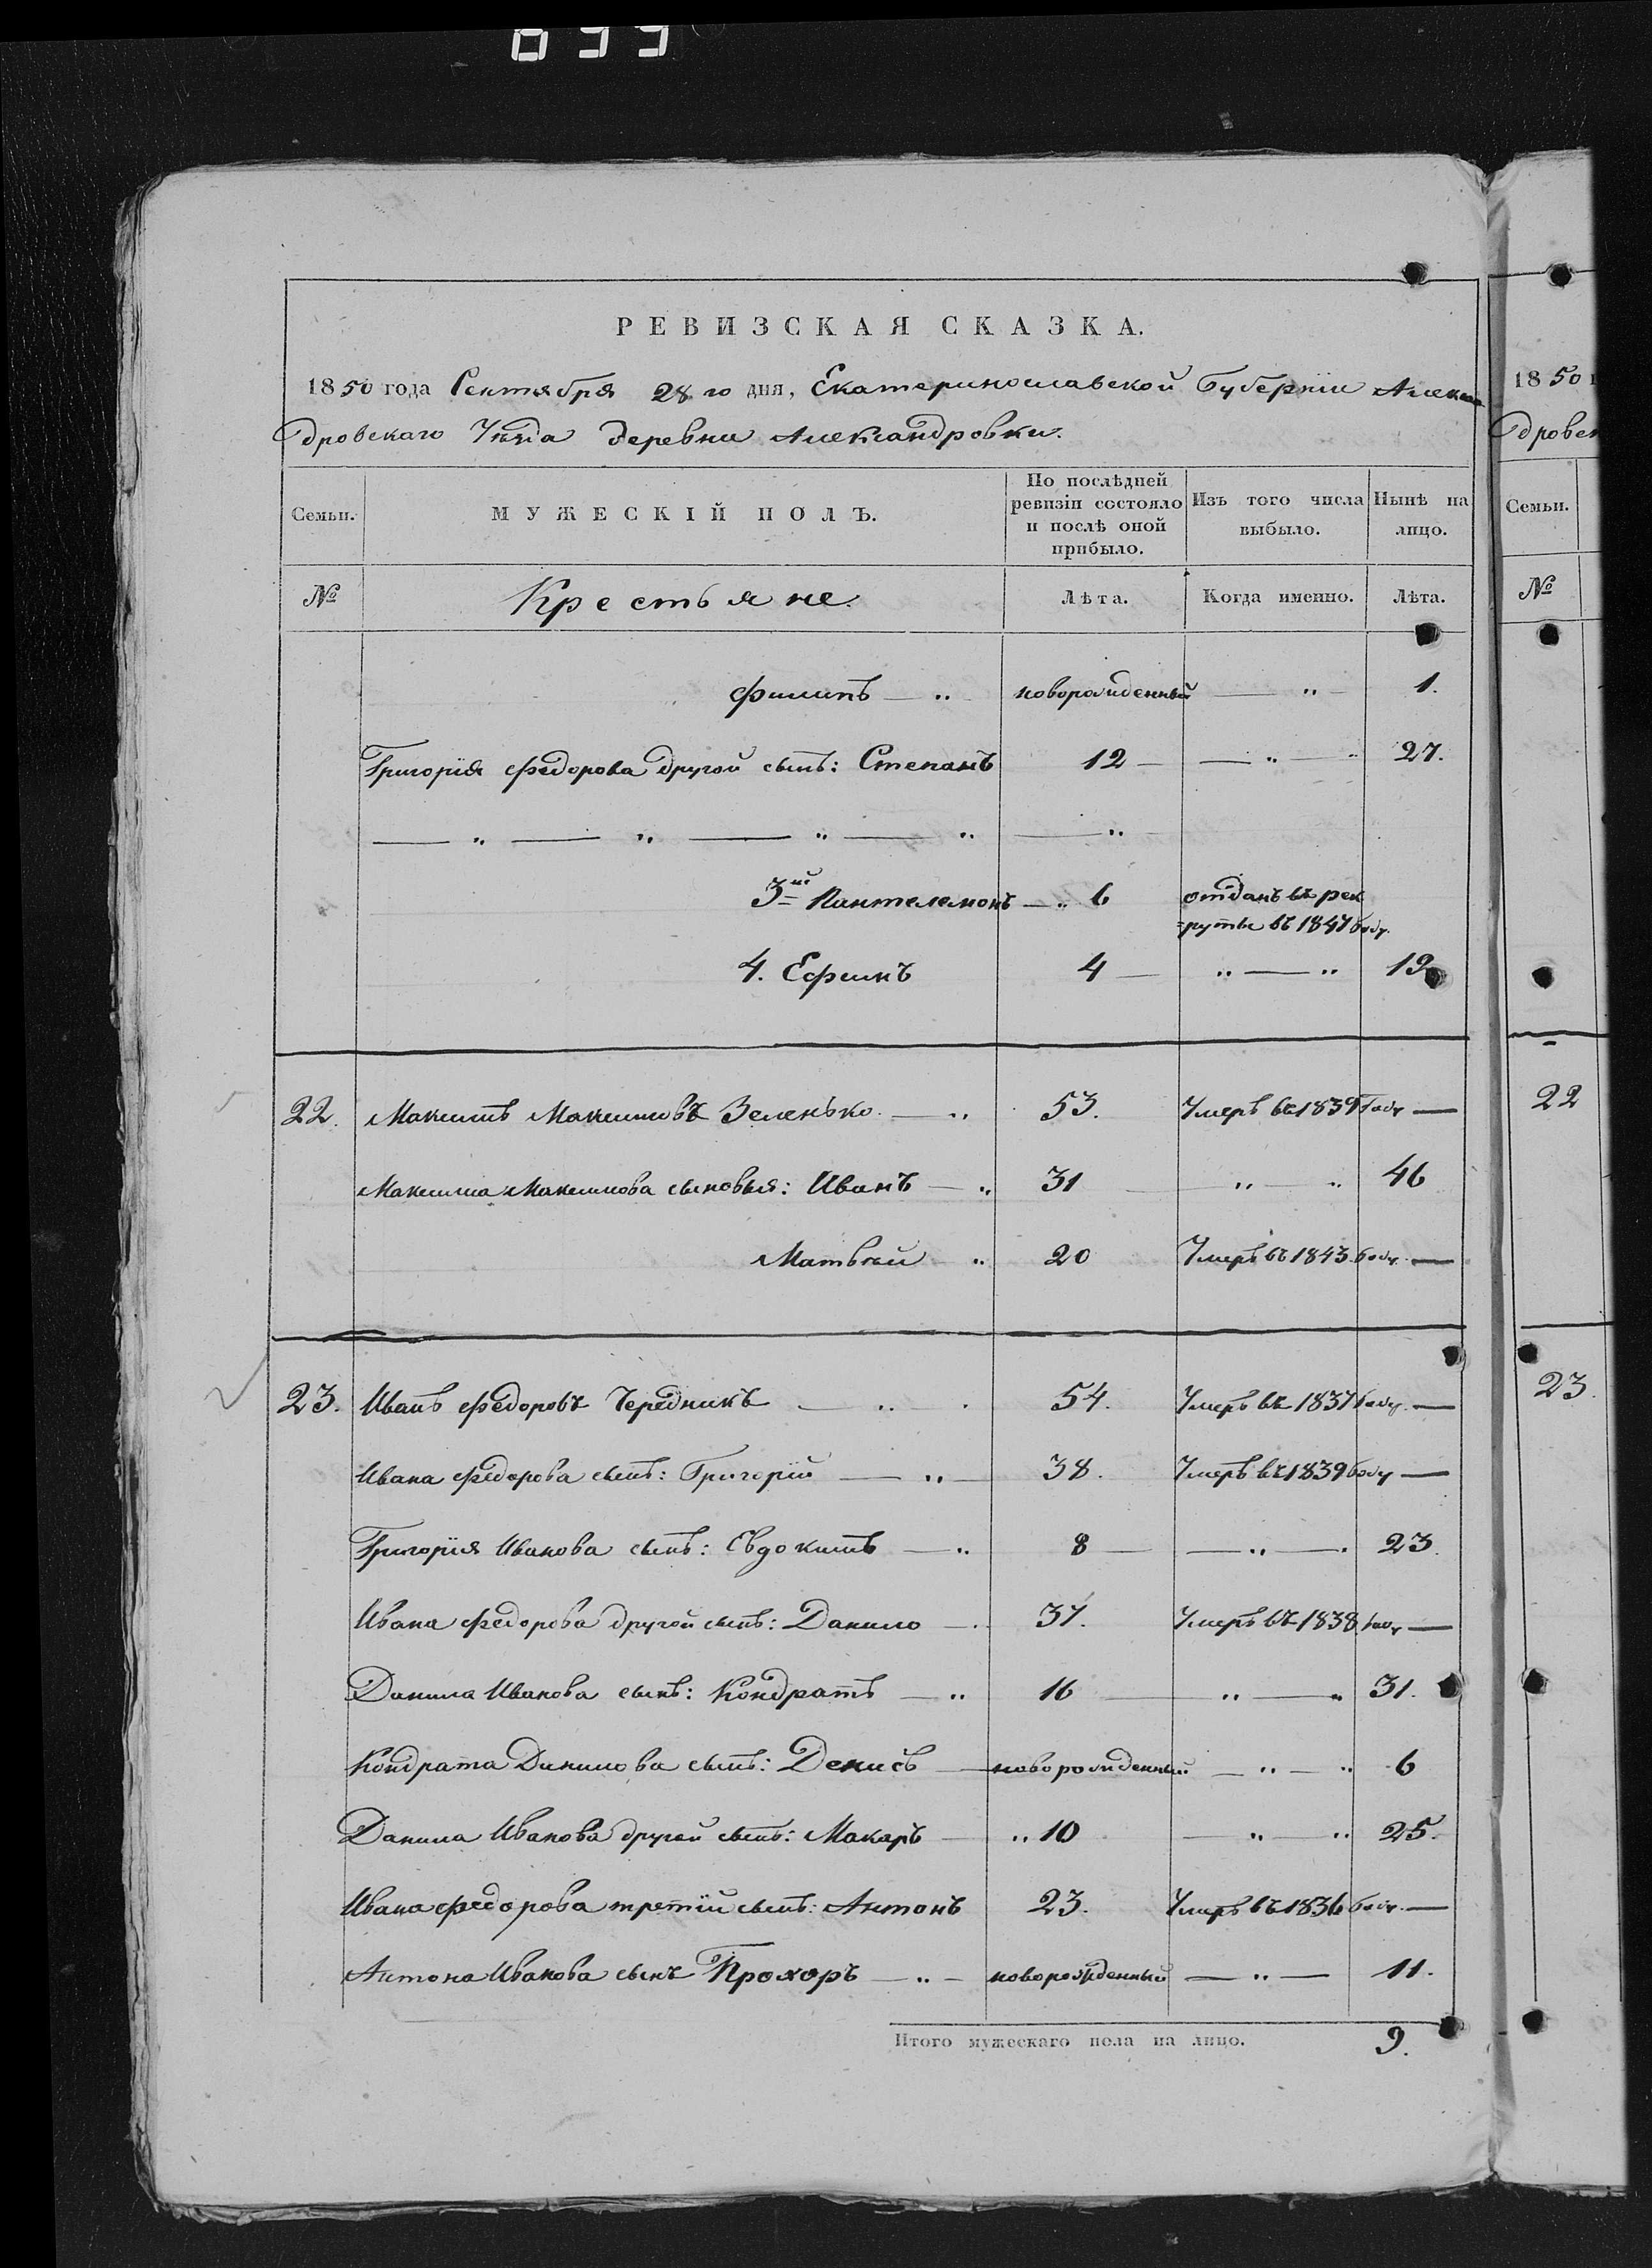 РЕВИЗСКАЯ СКАЗКА.
1850 года Сентября 28го дня, Екатеринославской Губерніи Алексан
дровскаго Уѣзда деревни Александровки.
Семьи. МУЖЕСКІЙ ПОЛЪ. По послѣдней ревизіи состояло и послѣ оной прибыло. Изъ того числа выбыло. Нынѣ на лицо.
№ Крестьяне. Лѣта. Когда именно. Лѣта.
Филипъ — „ новорожденный — „ — 1.
Григорія Федорова другой сынъ: Степанъ 12 — — „ — „ 27.
— „ — „ — „ — „ — „
3ій Пантелемонъ — „ 6 отданъ въ рек
=руты въ 1847 году.
4. Ефимъ 4 — „ — „ 19
22. Максимъ Максимовъ Зеленько. — „ 53. Умеръ въ 1839 году —
Максима Максимова сыновья: Иванъ — „ 31 „ — „ 46
Матвѣй — „ 20 Умеръ въ 1843 году. —
23. Иванъ Федоровъ Чередникъ — „ — 54. Умеръ въ 1837 году. —
Ивана Федорова сынъ: Григорій — „ — 38. Умеръ въ 1839 году —
Григорія Иванова сынъ: Евдокимъ — „ 8 — — „ — 23.
Ивана Федорова другой сынъ: Данило — „ 37. Умеръ въ 1838 году —
Данила Иванова сынъ: Кондратъ — „ 16 — „ — „ 31.
Кондрата Данилова сынъ: Денисъ — новорожденный — „ — „ 6
Данила Иванова другой сынъ: Макаръ — „ 10 — „ — „ 25.
Ивана Федорова третій сынъ: Антонъ 23. Умеръ въ 1836 году. —
Антона Иванова сынъ Прохоръ — „ — новорожденный — „ — 11.
Итого мужескаго пола на лицо. 9.
1850
дровск
Семьи.
№
22
23.